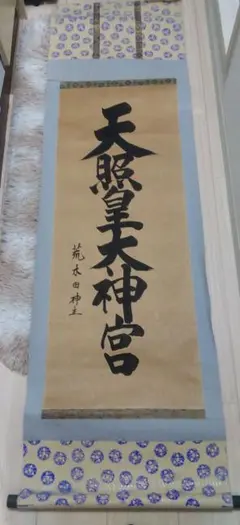 天照皇大神宮
荒木田神主